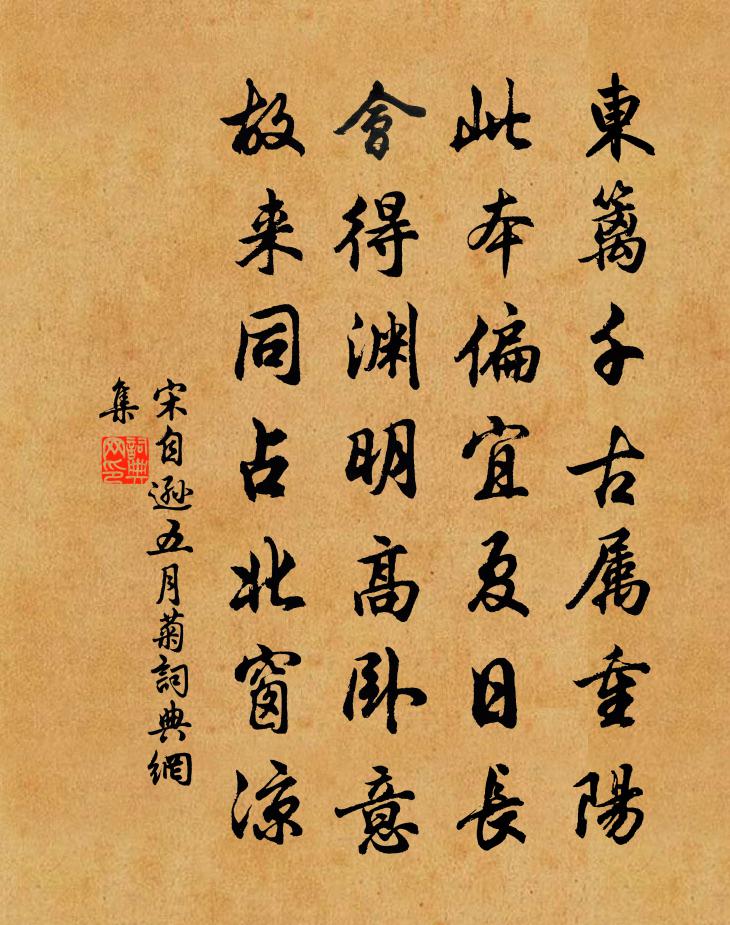 東籬千古属重陽
此本偏宜夏日長
會得渊明高卧意
故来同占北窗凉
宋自遜五月菊詞典網
集
詞典
网印